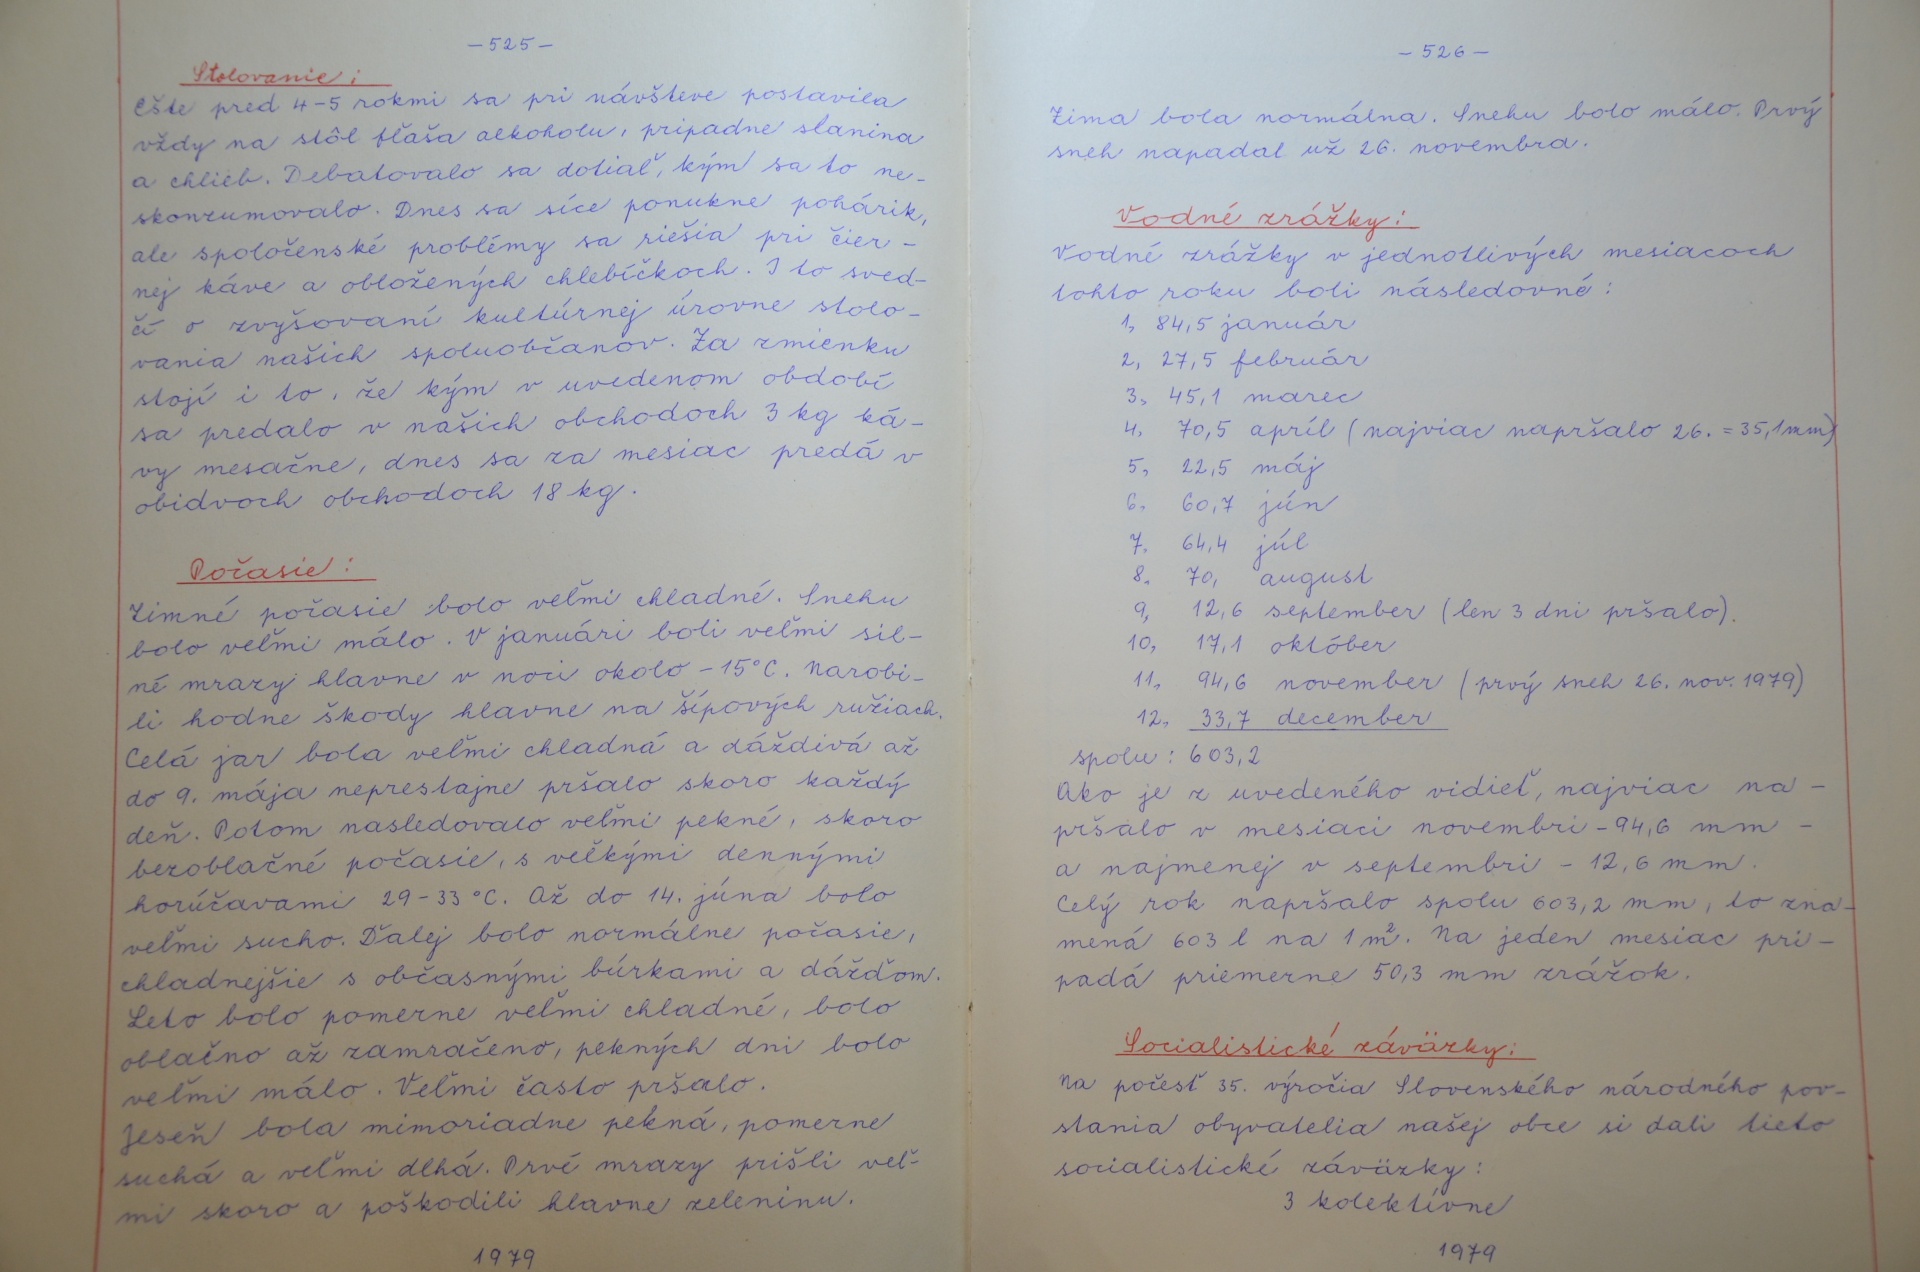 -525-
Stolovanie:
Ešte pred 4-5 rokmi sa pri návšteve postavila
vždy na stôl fľaša alkoholu, pripadne slanina
a chlieb. Debatovalo sa dotiaľ, kým sa to ne-
skonzumovalo. Dnes sa síce ponukne pohárik,
ale spoločenské problémy sa riešia pri čier-
nej káve a obložených chlebíčkoch. I to sved-
čí o zvyšovaní kultúrnej úrovne stolo-
vania našich spoluobčanov. Za zmienku
stojí i to, že kým v uvedenom období
sa predalo v našich obchodoch 3 kg ká-
vy mesačne, dnes sa za mesiac predá v
obidvoch obchodoch 18 kg.
Počasie:
Zimné počasie bolo veľmi chladné. Snehu
bolo veľmi málo. V januári boli veľmi sil-
né mrazy hlavne v noci okolo -15°C. Narobi-
li hodne škody hlavne na šípových ružiach.
Celá jar bola veľmi chladná a dáždivá až
do 9. mája neprestajne pršalo skoro každý
deň. Potom nasledovalo veľmi pekné, skoro
bezoblačné počasie, s veľkými dennými
horúčavami 29-33°C. Až do 14. júna bolo
veľmi sucho. Ďalej bolo normálne počasie,
chladnejšie s občasnými búrkami a dážďom.
Leto bolo pomerne veľmi chladné, bolo
oblačno až zamračeno, pekných dni bolo
veľmi málo. Veľmi často pršalo.
Jeseň bola mimoriadne pekná, pomerne
suchá a veľmi dlhá. Prvé mrazy prišli veľ-
mi skoro a poškodili hlavne zeleninu.
1979
-526-
Zima bola normálna. Snehu bolo málo. Prvý
sneh napadal už 26. novembra.
Vodné zrážky:
Vodné zrážky v jednotlivých mesiacoch
tohto roku boli následovné:
1, 84,5 január
2, 27,5 február
3, 45,1 marec
4, 70,5 apríl (najviac napršalo 26. = 35,1mm)
5, 22,5 máj
6. 60,7 jún
7. 64,4 júl
8. 70, august
9, 12,6 september (len 3 dni pršalo).
10, 17,1 október
11, 94,6 november (prvý sneh 26. nov. 1979)
12, 33,7 december
spolu: 603,2
Ako je z uvedeného vidieť, najviac na-
pršalo v mesiaci novembri - 94,6 mm -
a najmenej v septembri - 12,6 mm.
Celý rok napršalo spolu 603,2 mm, to zna-
mená 603 l na 1 m². Na jeden mesiac pri-
padá priemerne 50,3 mm zrážok.
Socialistické záväzky:
Na počesť 35. výročia Slovenského národného pov-
stania obyvatelia našej obce si dali tieto
socialistické záväzky:
3 kolektívne
1979